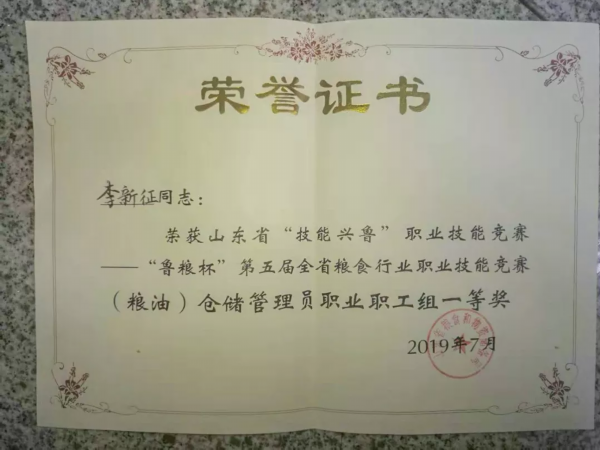 荣誉证书
李新征同志：
荣获山东省“技能兴鲁”职业技能竞赛
——“鲁粮杯”第五届全省粮食行业职业技能竞赛
（粮油）仓储管理员职业职工组一等奖
2019年7月